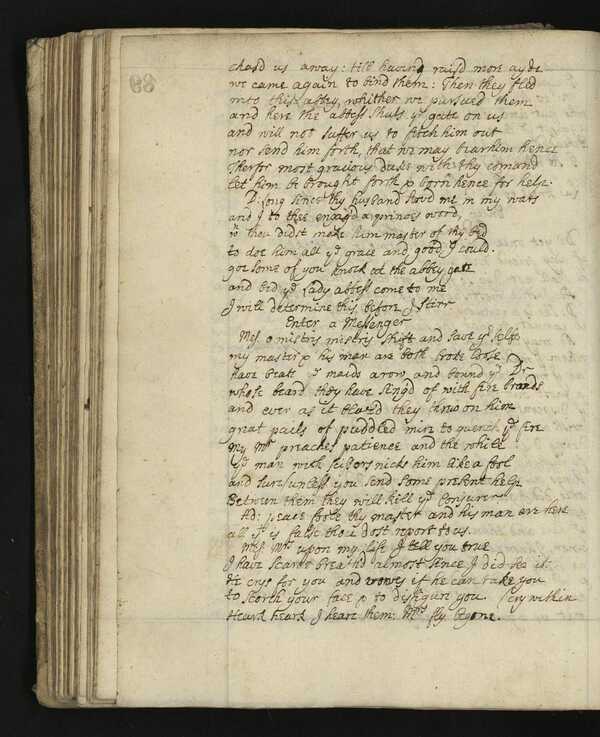 chasd us away: till having raisd more ayde
we came again to bind them: Then they fled
into this abby, whither we pursued them
and here the abbess shuts ye gate on us
and will not suffer us to fetch him out
nor send him forth, that we may bear him hence
Therfor most gracious duke with thy comand
let him be brought forth & born hence for help.
D. Long since thy husband servd me in my wars
and I to thee engagd a princes word,
thou didst make him master of thy bed
to doe him all ye grace and good I could.
goe some of you knock at the abbey gate
and bid ye Lady abbess come to me
I will determine this before I stirr
Enter a Messenger
Mes. o mistris mistris shift and save yr self
my master & his man are both broke loose
have beate ye maids a row, and bound ye Dr
whose beard they have singd of with fire brands
and ever as it blazd they threw on him
great pails of puddled mire to quench ye fire
my Mr preaches patience and the while
his man with scisors nicks him like a fool
and sure unless you send some present help
Between them they will kill ye Conjurer
Ad: peace foole thy master and his man are here
all yt is false thou dost report to us.
Mes. Mrs upon my life I tell you true
I have scarce breathd almost since I did see it
he crys for you and vowes if he can take you
to scorth your face & to disfigure you. cry within
Heark heark I heare them: Mrs fly begone.
39